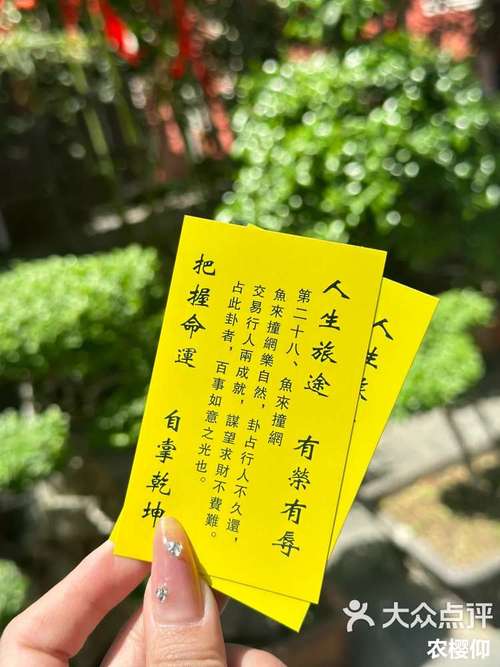 人生旅途 有榮有辱
第二十八、魚來撞網
魚來撞網樂自然，卦占行人不久還，
交易行人兩成就，謀望求財不費難。
占此卦者，百事如意之光也。
把握命運 自掌乾坤
人生
大众点评
农樱仰